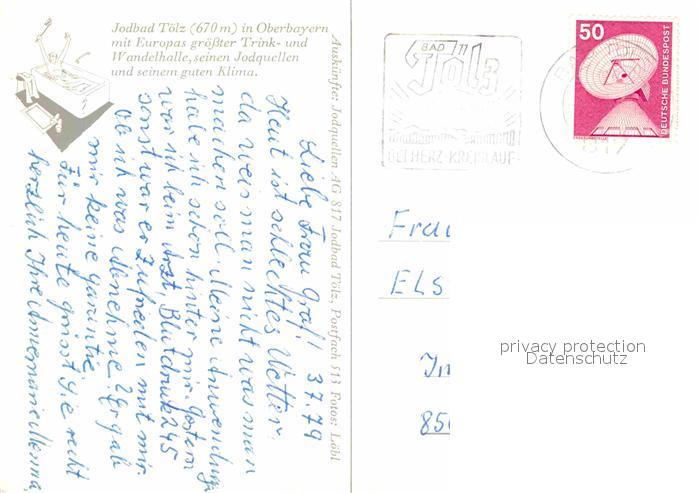 Jodbad Tölz (670 m) in Oberbayern
mit Europas größter Trink- und
Wandelhalle, seinen Jodquellen
und seinem guten Klima.
Auskünfte: Jodquellen AG 817 Jodbad Tölz, Postfach 513 Fotos: Löbl
3779
Liebe Frau Graf!
Heut ist schlechtes Wetter
da weis man nicht was man
machen soll. Meine Anwendung
habe ich schon hinter mir. Gestern
war ich beim Arzt, Blutdruck 245
sonst war er zufrieden mit mir.
Ob ich was abnehme? Er gab
mir keine garantie.
Für heute grüsst Sie recht
herzlich Ihre
BAD Tölz
BEI HERZ-KREISLAUF
50
DEUTSCHE BUNDESPOST
Frau
Els
In
850
privacy protection
Datenschutz